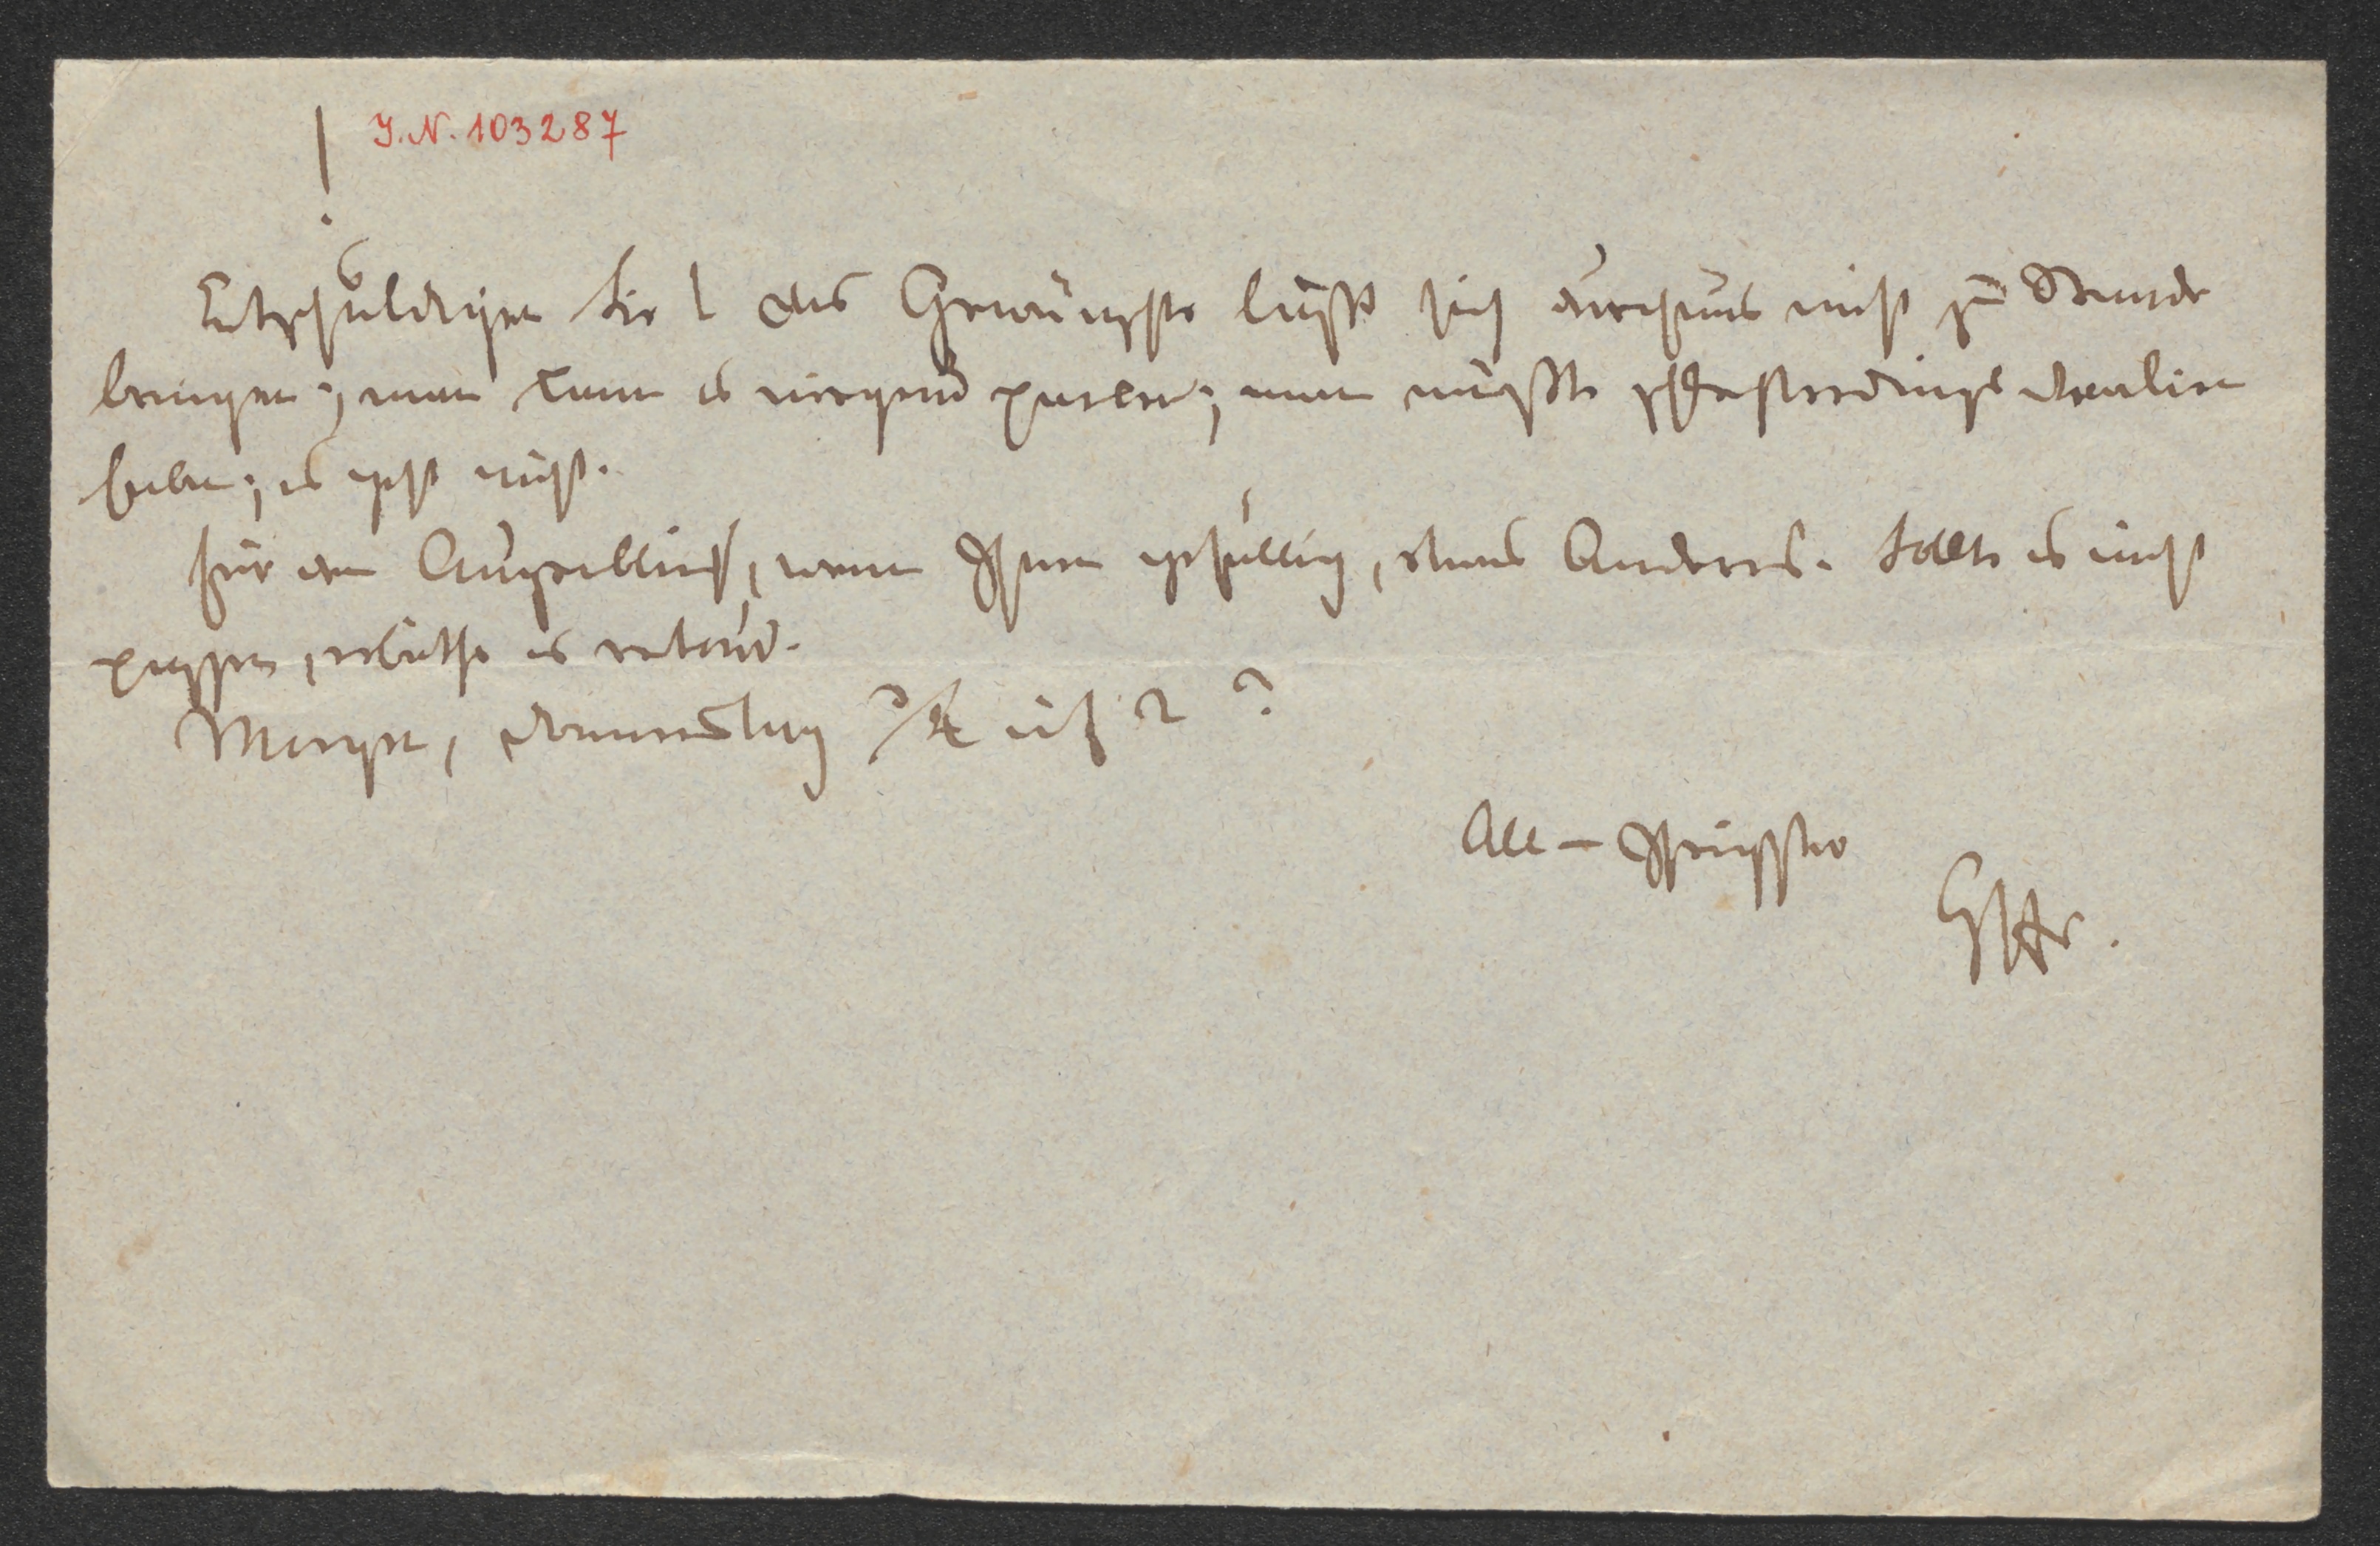 !
I. N. 103287
Entschuldigen Sie! das Gewünschte läßt sich durchaus nicht zu Stande
bringen; man kann es nirgend packen; man müßte schlechterdings
haben; es geht nicht.
Für den Augenblick, wenn Ihnen gefällig, etwas Anderes. Sollte es nicht
passen, erbitte es retour.
Morgen, Donnerstag 3/4 auf 2?
All-Ihrigster